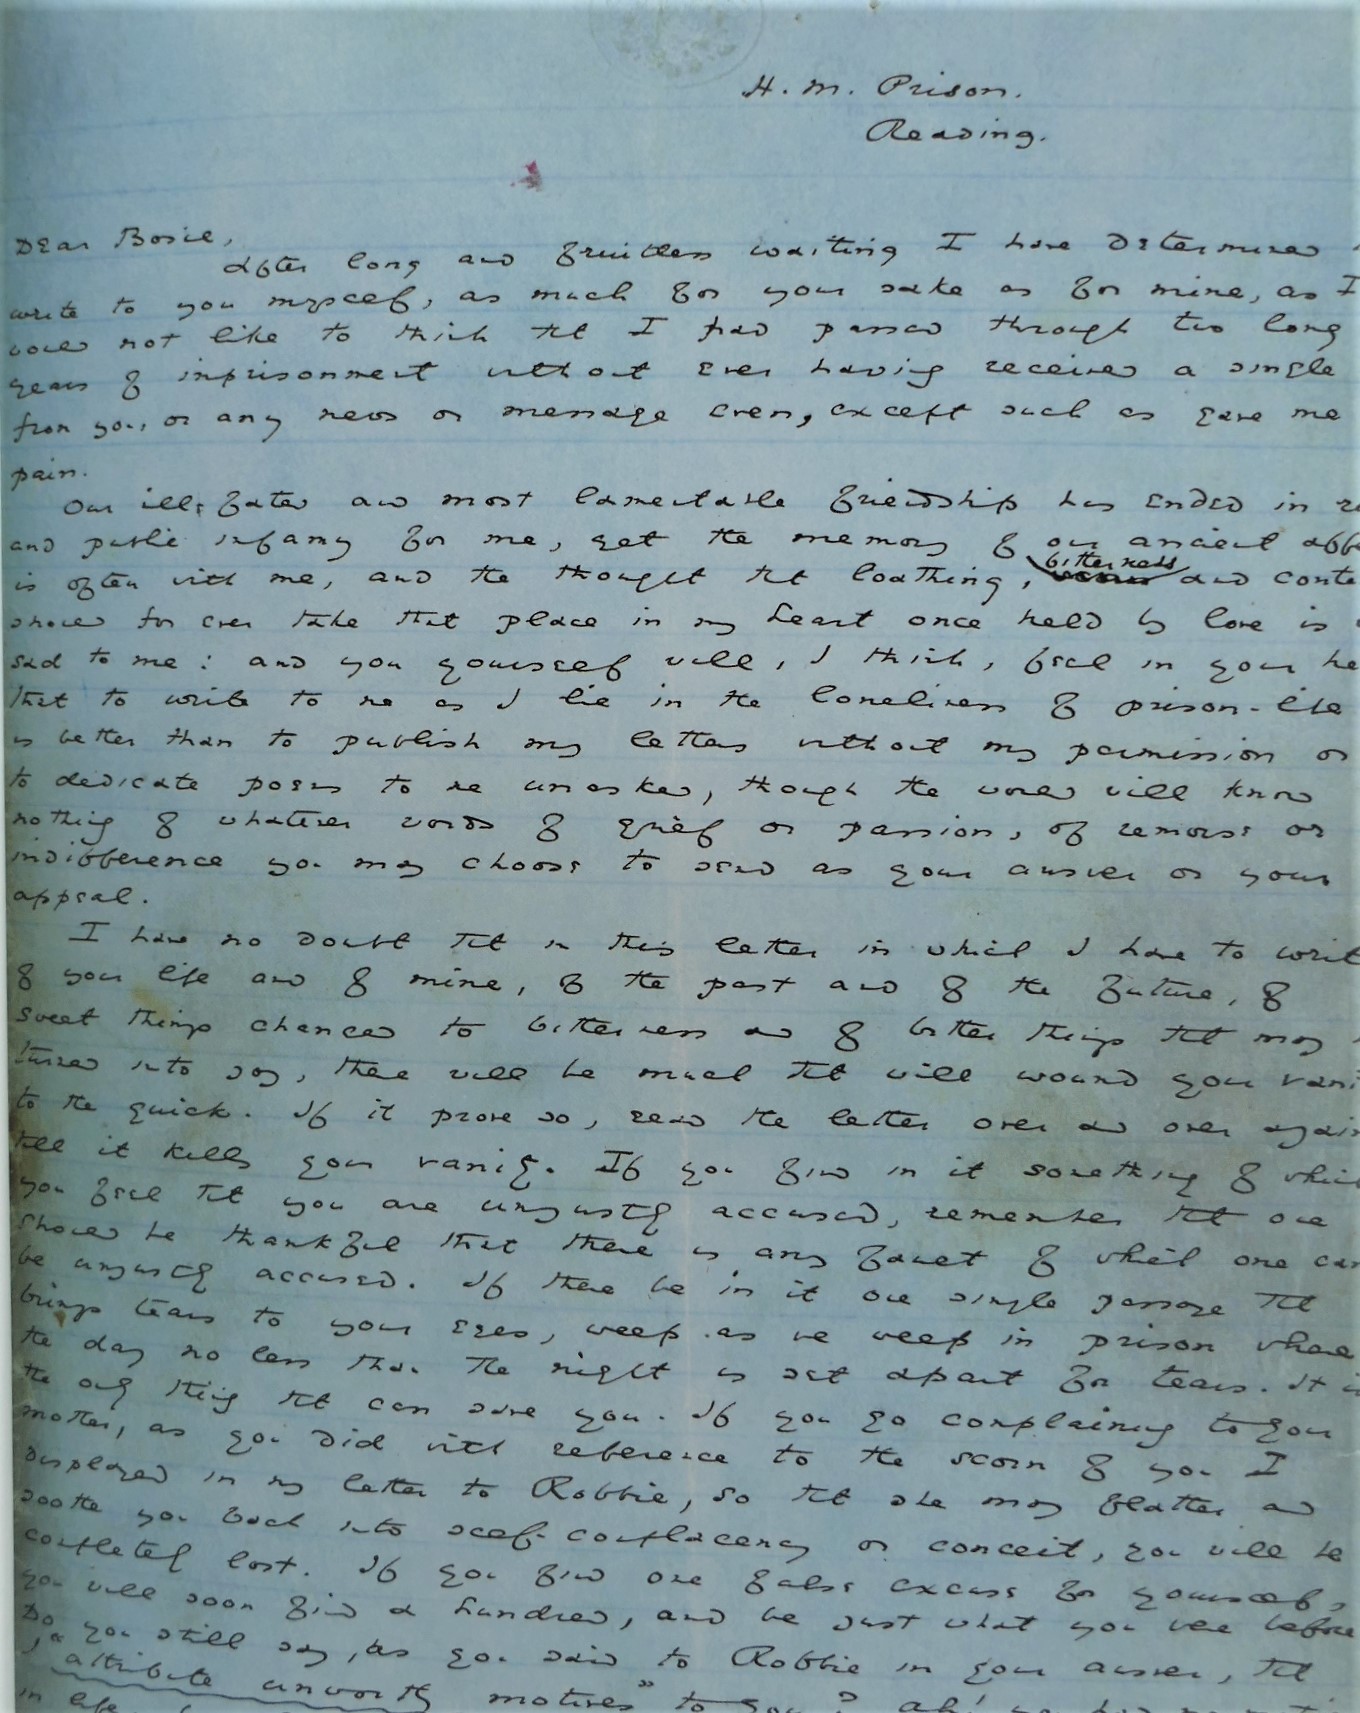 H. M. Prison.
Reading.
Dear Bosie,
After long and fruitless waiting I have determined
write to you myself, as much for your sake as for mine, as I
would not like to think that I had passed through two long
years of imprisonment without ever having received a single
from you, or any news or message even, except such as gave me
pain.
Our ill-fated and most lamentable friendship has ended in
and public infamy for me, yet the memory of our ancient
bitterness
is often with me, and the thought that loathing, scorn and
should for ever take that place in my heart once held by love is
sad to me: and you yourself will, I think, feel in your
that to write to me as I lie in the loneliness of prison-life
is better than to publish my letters without my permission or
to dedicate poems to me unasked, though the world will know
nothing of whatever words of grief or passion, of remorse or
indifference you may choose to send as your answer or your
appeal.
I have no doubt that in this letter in which I have to write
of your life and of mine, of the past and of the future, of
sweet things changed to bitterness and of bitter things that may
turned into joy, there will be much that will wound your
to the quick. If it prove so, read the letter over and over again
till it kills your vanity. If you find in it something of which
you feel that you are unjustly accused, remember that one
should be thankful that there is any fault of which one can
be unjustly accused. If there be in it one single passage that
brings tears to your eyes, weep as we weep in prison where
the day no less than the night is set apart for tears. It is
the only thing that can save you. If you go complaining to your
mother, as you did with reference to the scorn of you I
displayed in my letter to Robbie, so that she may flatter and
soothe you back into self-complacency or conceit, you will be
completely lost. If you find one false excuse for yourself,
you will soon find a hundred, and be just what you were before
Do you still say, as you said to Robbie in your answer, that
I "attribute unworthy motives" to you? Ah! you had no
in life.